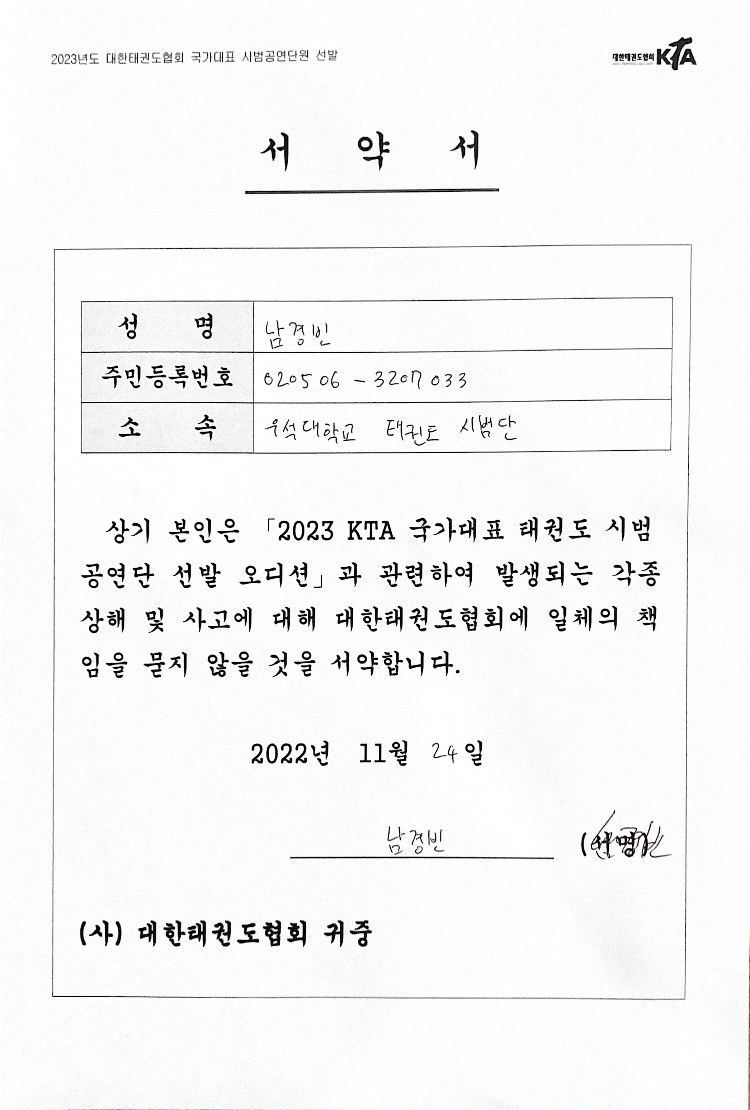 2023년도 대한태권도협회 국가대표 시범공연단원 선발
대한태권도협회 KTA
서 약 서
성 명 남경빈
주민등록번호 020506 - 3207033
소 속 우석대학교 태권도 시범단
상기 본인은 「2023 KTA 국가대표 태권도 시범
공연단 선발 오디션」과 관련하여 발생되는 각종
상해 및 사고에 대해 대한태권도협회에 일체의 책
임을 묻지 않을 것을 서약합니다.
2022년 11월 24일
남경빈 (서명)
(사) 대한태권도협회 귀중